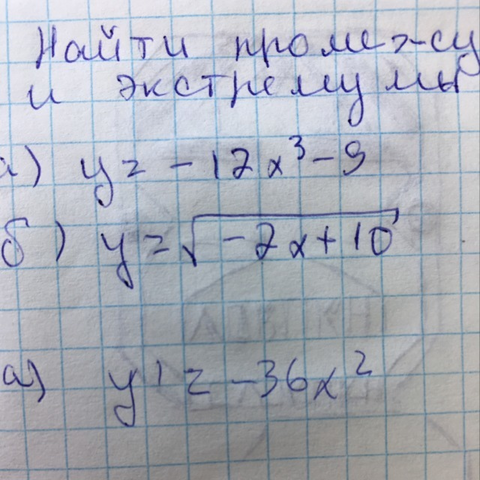 Найти промежу
и экстремумы
а) y = -12x³ - 9
б) y = √-2x+10
а) y' = -36x²